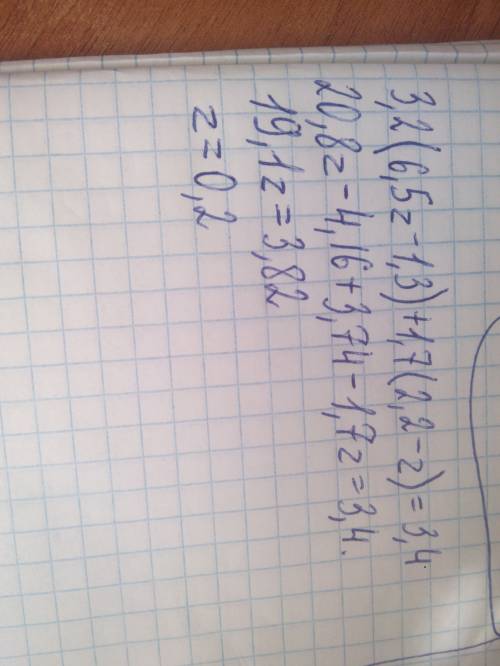 3,2(6,5z-1,3)+1,7(2,2-z)=3,4
20,8z-4,16+3,74-1,7z=3,4.
19,1z=3,82
z=0,2